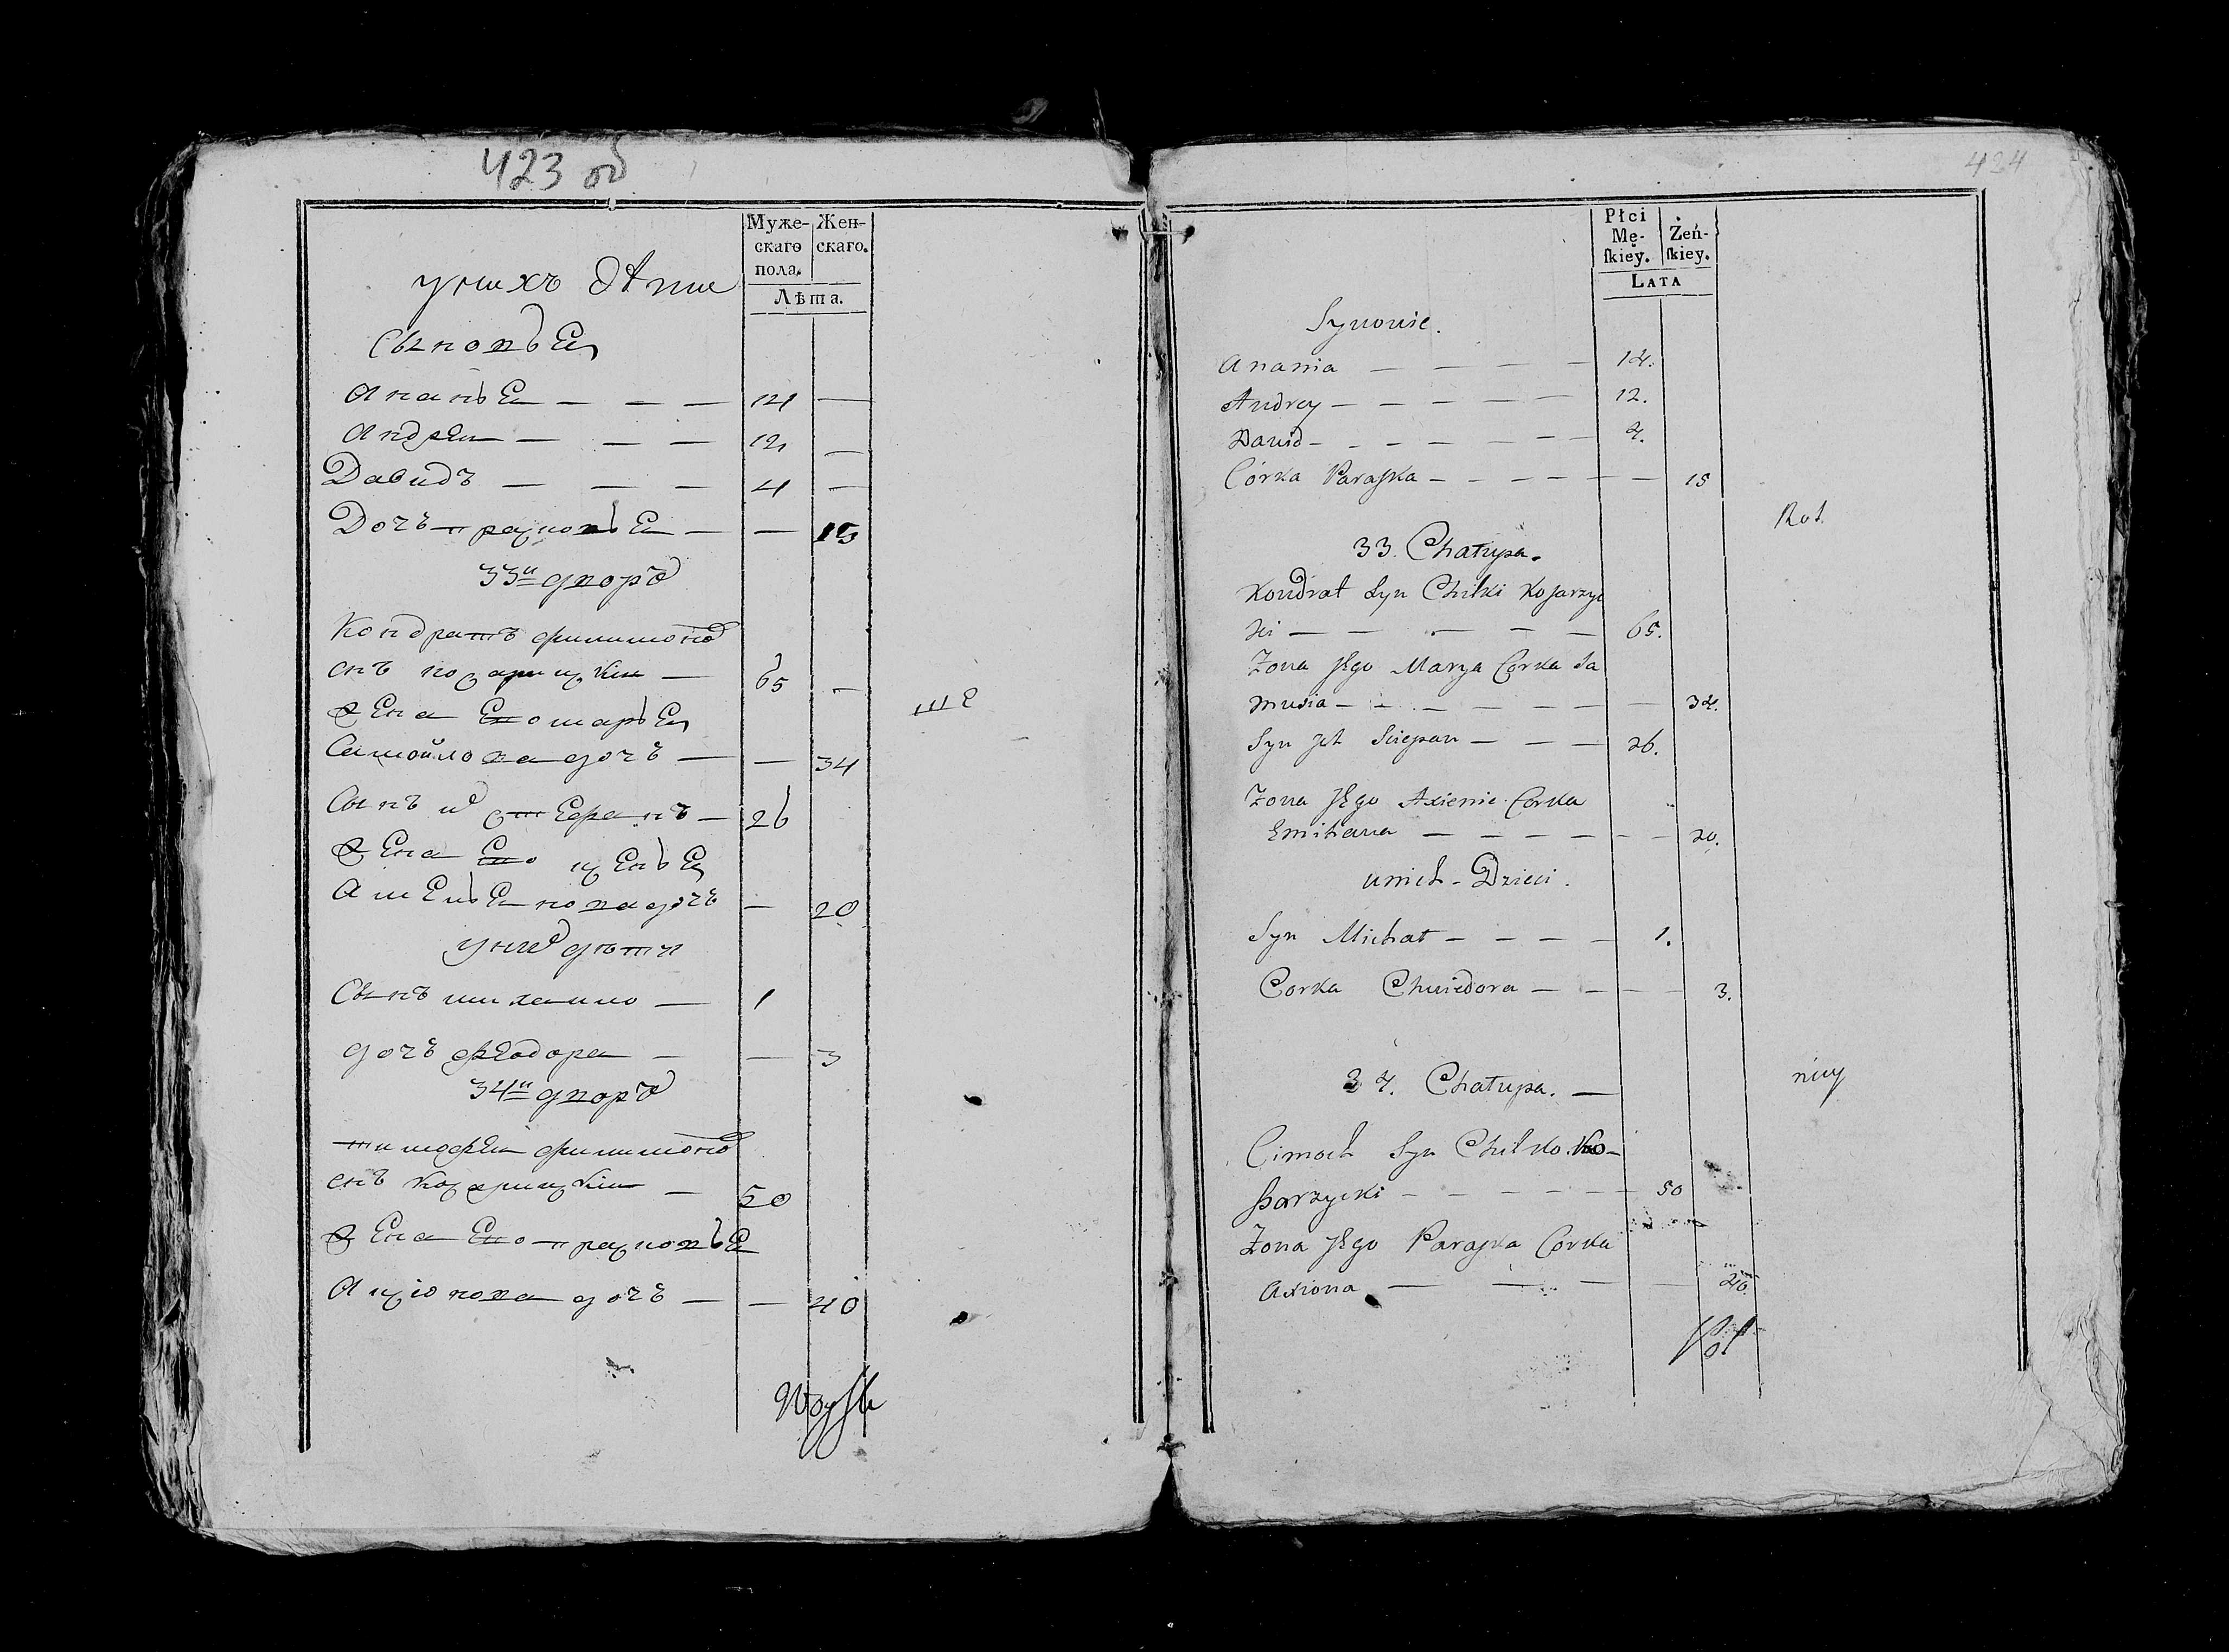 423 об
Муже-
скаго
пола.
Жен-
скаго.
Лѣта.
у нихъ дѣти
Сыновья
Ананья — — — 14 —
Андрей — — — 12 —
Давидъ — — — 4 —
Дочь прасковья — — 15
33й дворъ
Кондратъ филимонов
снъ козарицкій — 65 —
жена его марья
Самойлова дочь — — 34
Сынъ их степанъ — 26
жена его
Амельянова дочь — 20
у них дѣти
Сынъ михаило — 1
дочь федора — — 3
34й дворъ
тимофей филимонов
снъ козарицкій — 50
жена его прасковья
Аксюнова дочь — — 40
424
Płci
Mę-
ſkiey.
Żeń-
ſkiey.
LATA
Synowie.
Anania — — — — 14.
Andrey — — — — — 12.
Dawid — — — — — — 4.
Córka Paraska — — — — — — 15
Rot.
33. Chałupa.
Kondrat Syn Chilki Kosarzyc
ki — — — — — 65.
Zona Jego Marya Corka Sa
musia — — — — — — — 34.
Syn Ich Sciepan — — — 26.
Zona Jego Axienie Corka
Emiliana — — — — — — 20.
u nich Dzieci.
Syn Michał — — — — 1.
Corka Chwiedora — — — — 3.
34. Chałupa. —
Cimoch Syn Chilko Ko-
sarzycki — — — — — — 50
Zona Jego Paraska Corka
Axiona — — — — 40.